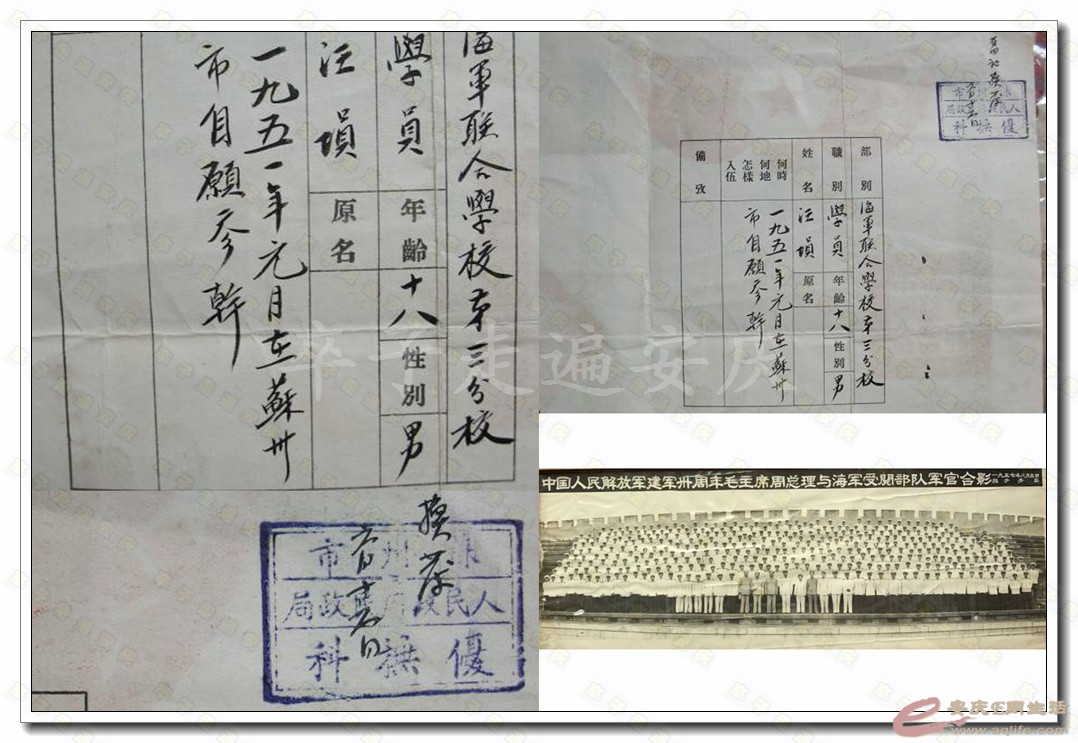 海軍联合學校第三分校
學員
年齡
十八
性別
男
汪塤
原名
一九五一年元月在蘇州
市自願參幹
換發
六月廿七日
蘇州市
人民政府民政局
優撫科
換發
蘇州市
人民政府民政局
優撫科
部別
海軍联合學校第三分校
職別
學員
年齡
十八
性別
男
姓名
汪塤
原名
何時
何地
怎樣
入伍
一九五一年元月在蘇州
市自願參幹
備攷
中国人民解放军建军卅周年毛主席周总理与海军受閱部队军官合影
卒子走遍安庆
安庆E网生活
www.aqlife.com